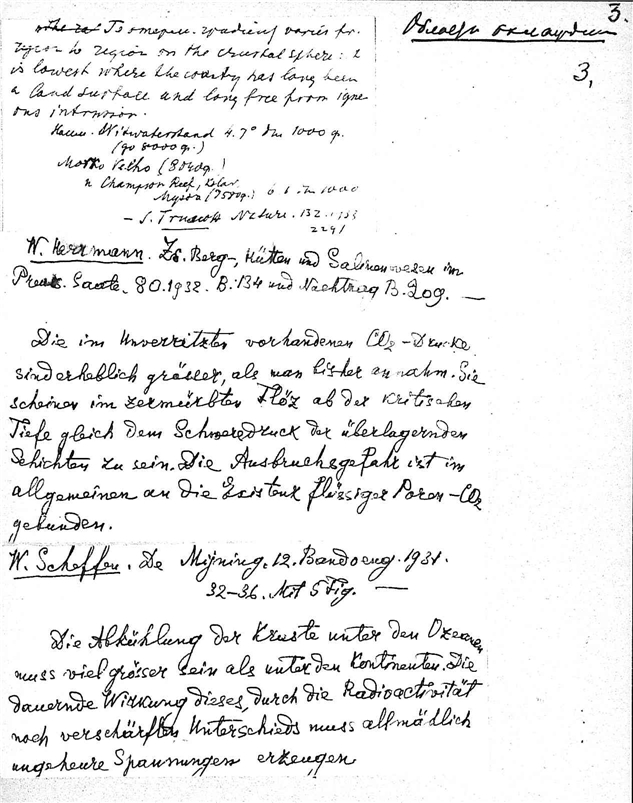 3.
Области охлаждения
3,
varies fr.
region to region on the crustal sphere: it
is lowest where the country has long been
a land surface and long free from igne
ous intrusion.
Witwatersrand 4.7° на 1000 ф.
(до 8000 ф.)
Morro Velho (8040 ф.)
и Champion Reef, Kolar,
Mysore (7500 ф.) 6
– Nature. 132. 1933
W. Herrmann. Zs. Berg-, Hütten und Salinenwesen im
Preuss. Staate. 80. 1932. B. 134 und Nachtrag B. 209. —
Die im Unverritzten vorhandenen CO2-Drucke
sind erheblich grösser, als man bisher annahm. Sie
scheinen im zermürbten Flöz ab der kritischen
Tiefe gleich dem Schweredruck der überlagernden
Schichten zu sein. Die Ausbruchsgefahr ist im
allgemeinen an die Existenz flüssiger Poren-CO2
gebunden.
W. Scheffen. De Mijning. 12. Bandoeng. 1931.
32-36. Mit 5 Fig. —
Die Abkühlung der Kruste unter den Ozeanen
muss viel grösser sein als unter den Kontinenten. Die
dauernde Wirkung dieses, durch die Radioactivität
noch verschärften Unterschieds muss allmählich
ungeheure Spannungen erzeugen.